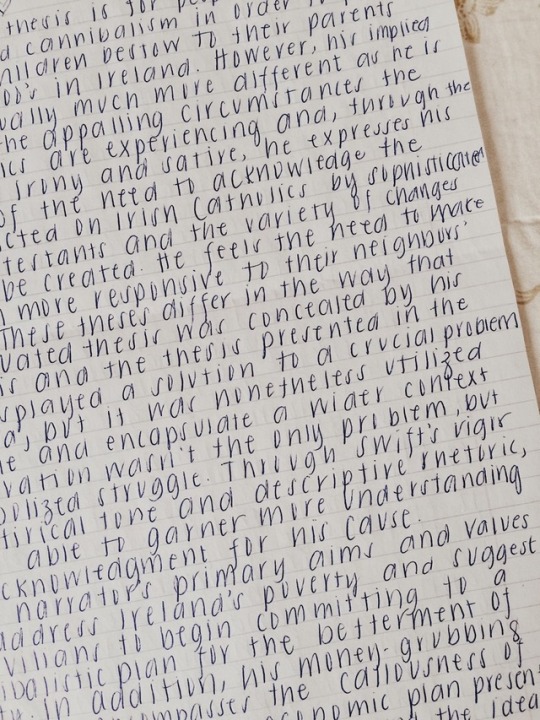 thesis is for
d cannibalism in order
hildren bestow to their parents
in Ireland. However, his implied
ually much more different as he is
he appalling circumstances the
ics are experiencing and, through the
irony and satire, he expresses his
of the need to acknowledge the
cted on Irish Catholics by sophisticated
testants and the variety of changes
be created. He feels the need to make
more responsive to their neighbours'
These theses differ in the way that
vated thesis was concealed by his
is and the thesis presented in the
splayed a solution to a crucial problem
but it was nonetheless utilized
e and encapsulate a wider context
vation wasn't the only problem, but
bolized struggle. Through Swift's vigir
tirical tone and descriptive rhetoric,
able to garner more understanding
cknowledgment for his cause.
narrator's primary aims and values
address Ireland's poverty and suggest
vilians to begin committing to a
ibalistic plan for the betterment of
in addition, his money-grubbing
compasses the callousness of
economic plan present
the idea